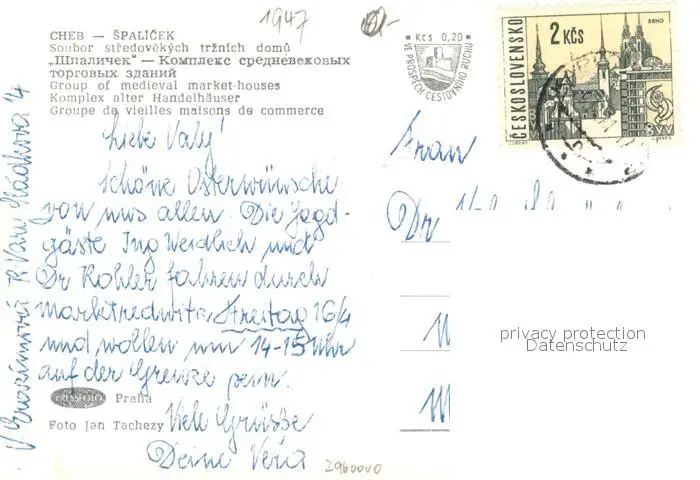 1947
CHEB — ŠPALÍČEK
Soubor středověkých tržních domů
„Шпаличек" — Комплекс средневековых
торговых зданий
Group of medieval market-houses
Komplex alter Handelhäuser
Groupe de vieilles maisons de commerce
KčS 0,20
VE PROSPĚCH CESTOVNÍHO RUCHU
ČESKOSLOVENSKO
2 KČS
BRNO
BVV
Liebe Valy!
Schöne Osterwünsche
von uns allen. Die Jagd-
gäste Ing Weidlich und
Dr Kohler fahren durch
Marktredwitz, Freitag 16/4
und wollen um 14-15 Uhr
auf der Grenze sein.
Viele Grüsse
Deine Věra
Frau
Dr
PRESSFOTO Praha
Foto Jan Tachezy
K. Vary Sládkova 14
privacy protection
Datenschutz
2960000